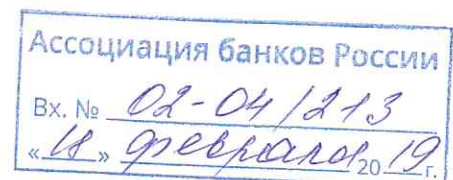 Ассоциация банков России
Вх. № 02-04/213
«18» февраля 2019 г.